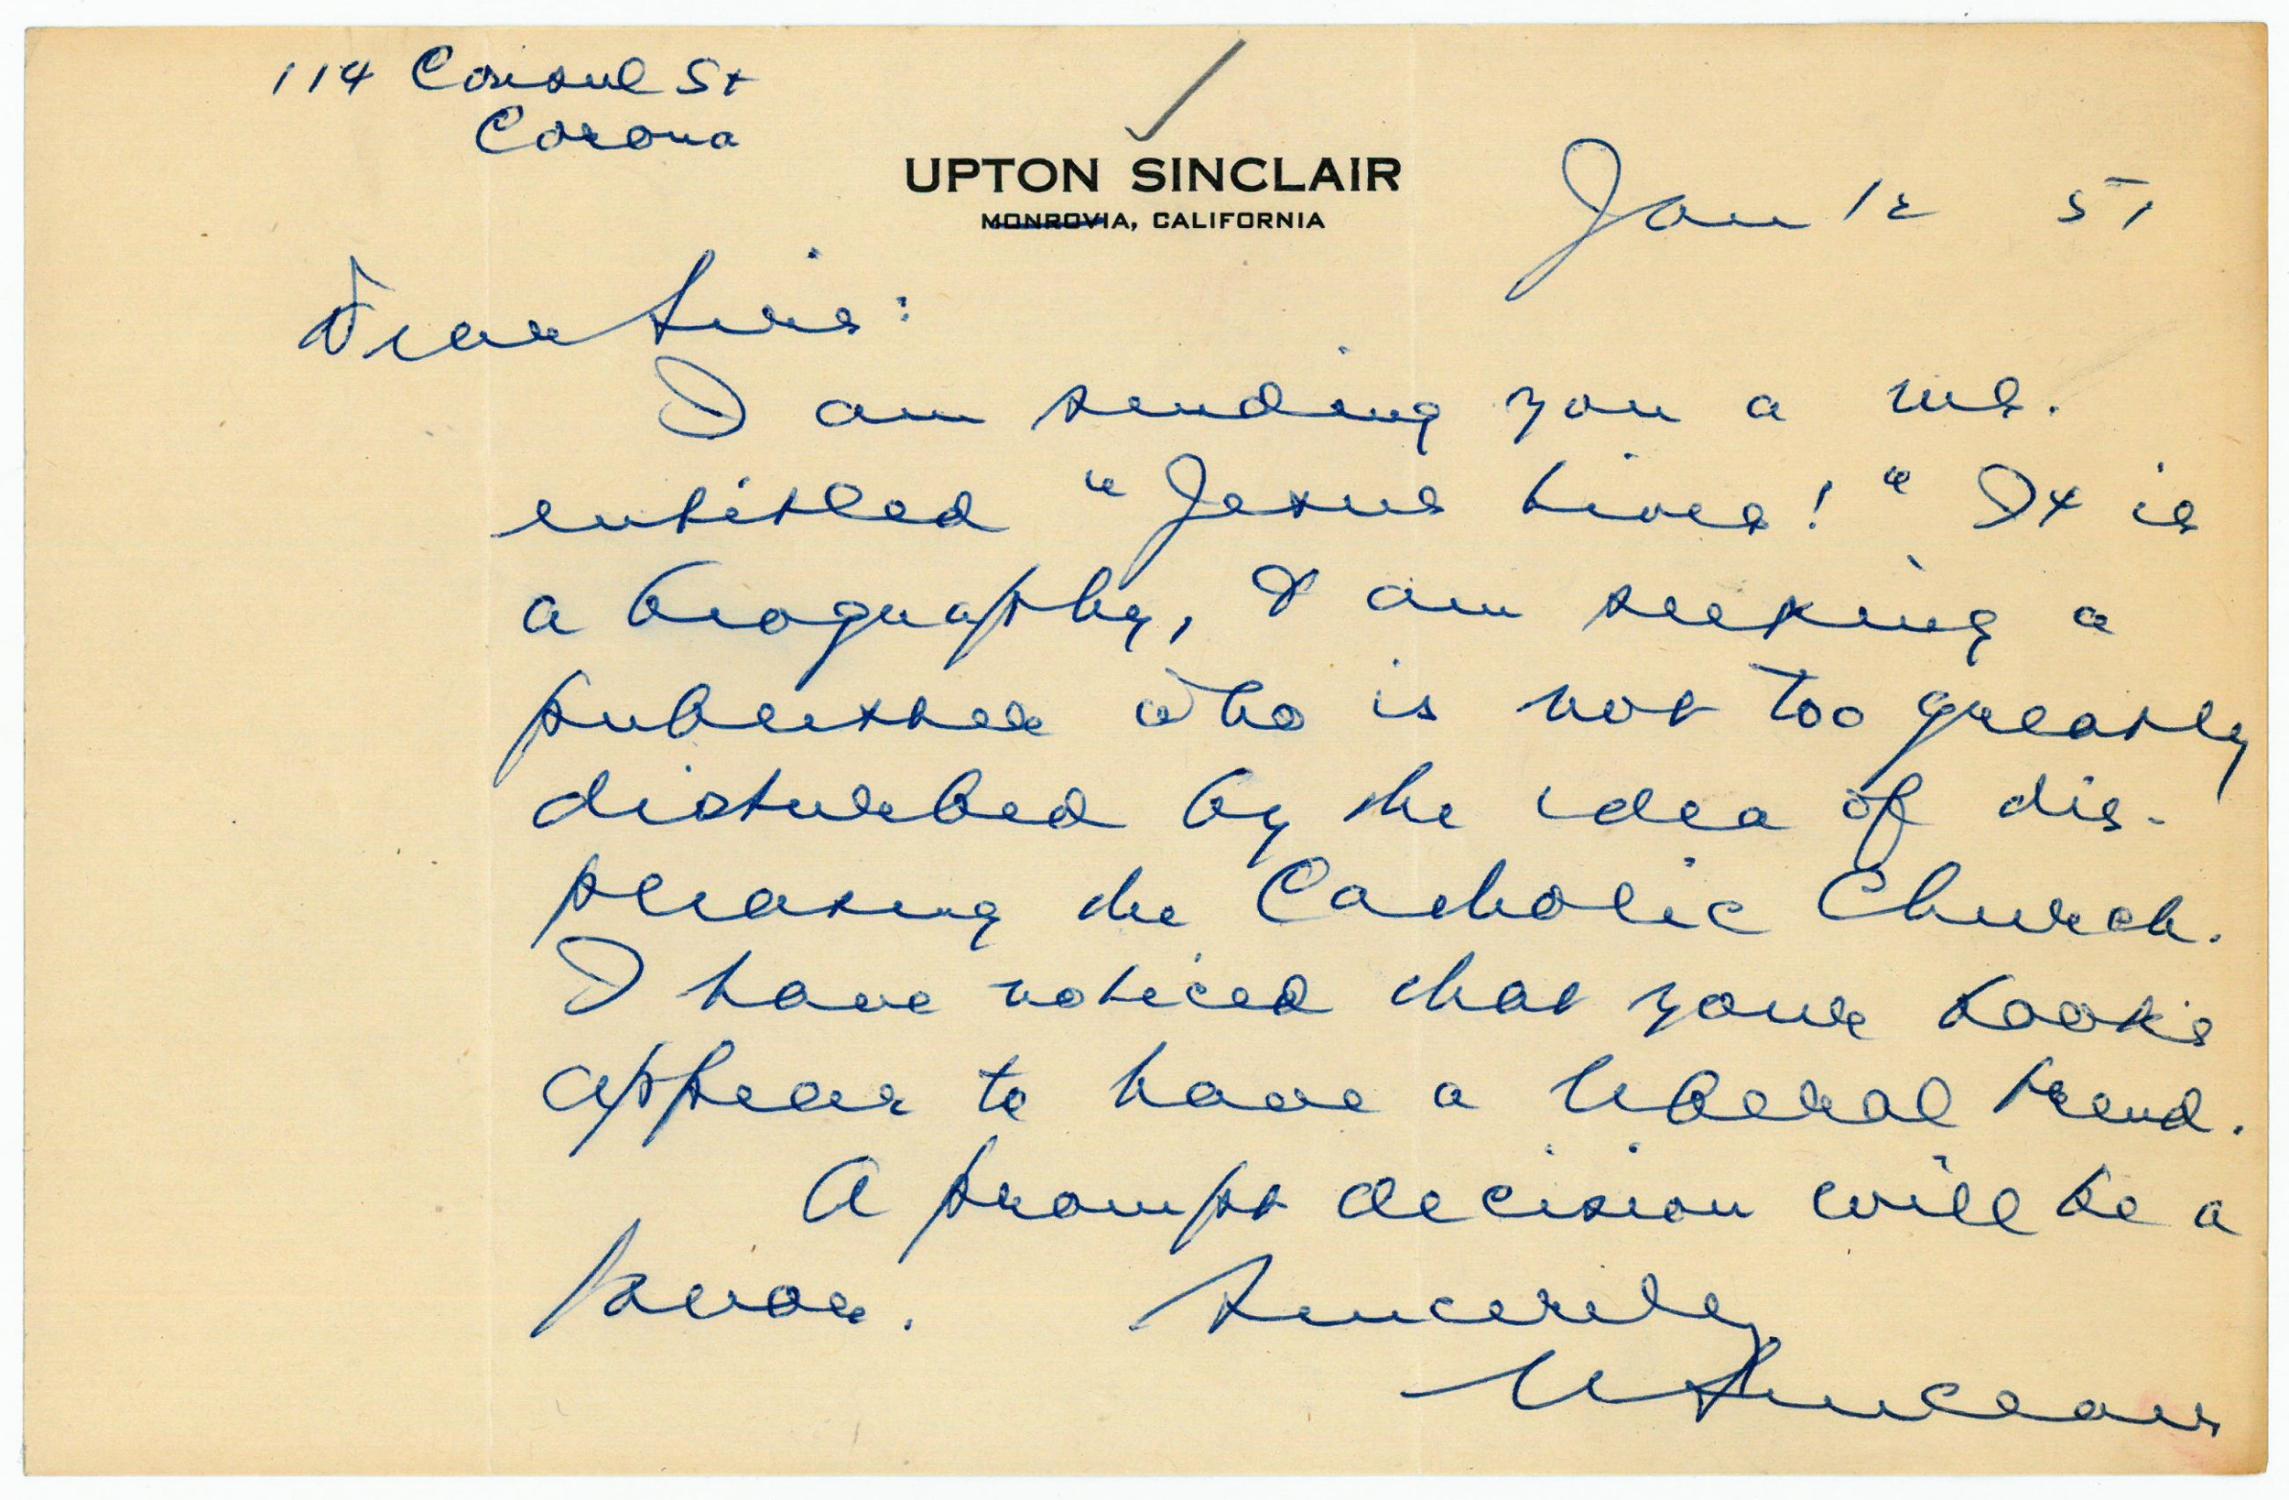 114 Consul St
Corona
UPTON SINCLAIR
MONROVIA, CALIFORNIA
Jan 12 51
Dear Sirs:
I am sending you a ms.
entitled "Jesus Lives!" It is
a biography, & am seeking a
publisher who is not too greatly
disturbed by the idea of dis-
pleasing the Catholic Church.
I have noticed that your books
appear to have a liberal trend.
A prompt decision will be a
favor. Sincerely,
U Sinclair